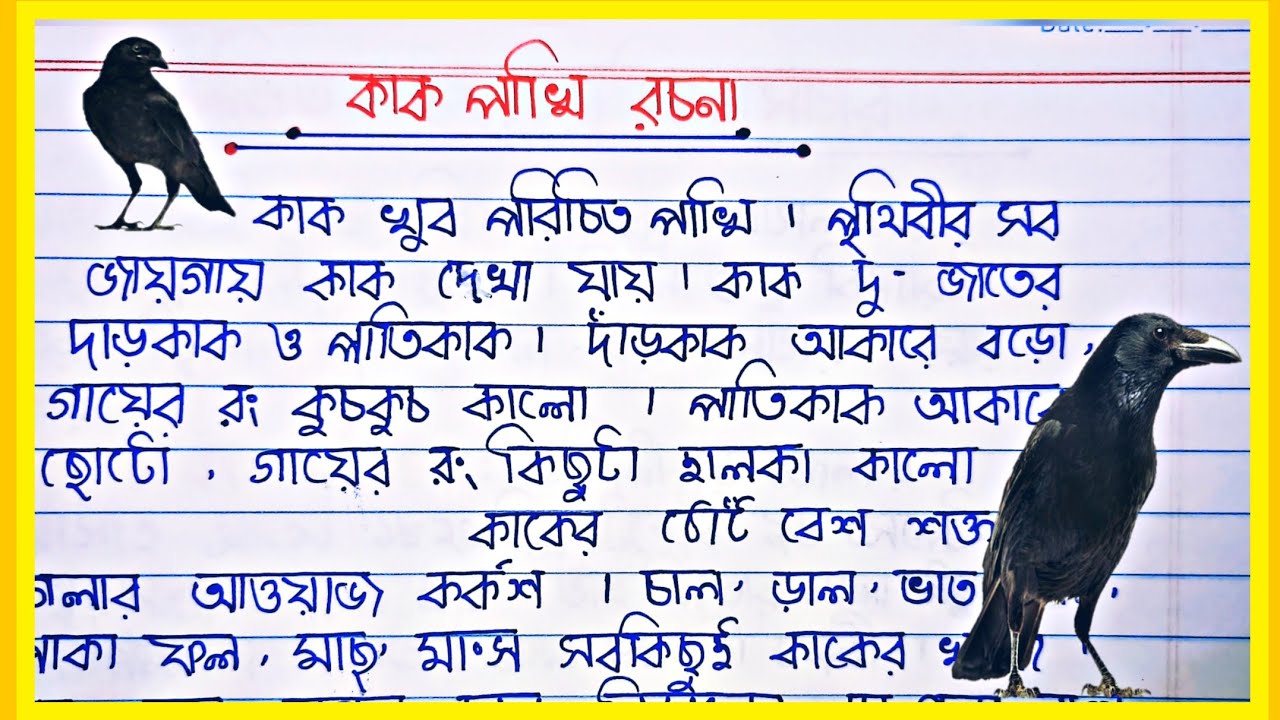 Date:
কাক পাখি রচনা
কাক খুব পরিচিত পাখি । পৃথিবীর সব
জায়গায় কাক দেখা যায় । কাক দু - জাতের
দাড়কাক ও পাতিকাক । দাঁড়কাক আকারে বড়ো ,
গায়ের রং কুচকুচ কালো । পাতিকাক আকারে
ছোটো , গায়ের রং কিছুটা হালকা কালো
কাকের ঠোঁট বেশ শক্ত
গলার আওয়াজ কর্কশ । চাল , ডাল , ভাত ,
পাকা ফল , মাছ , মাংস সবকিছুই কাকের